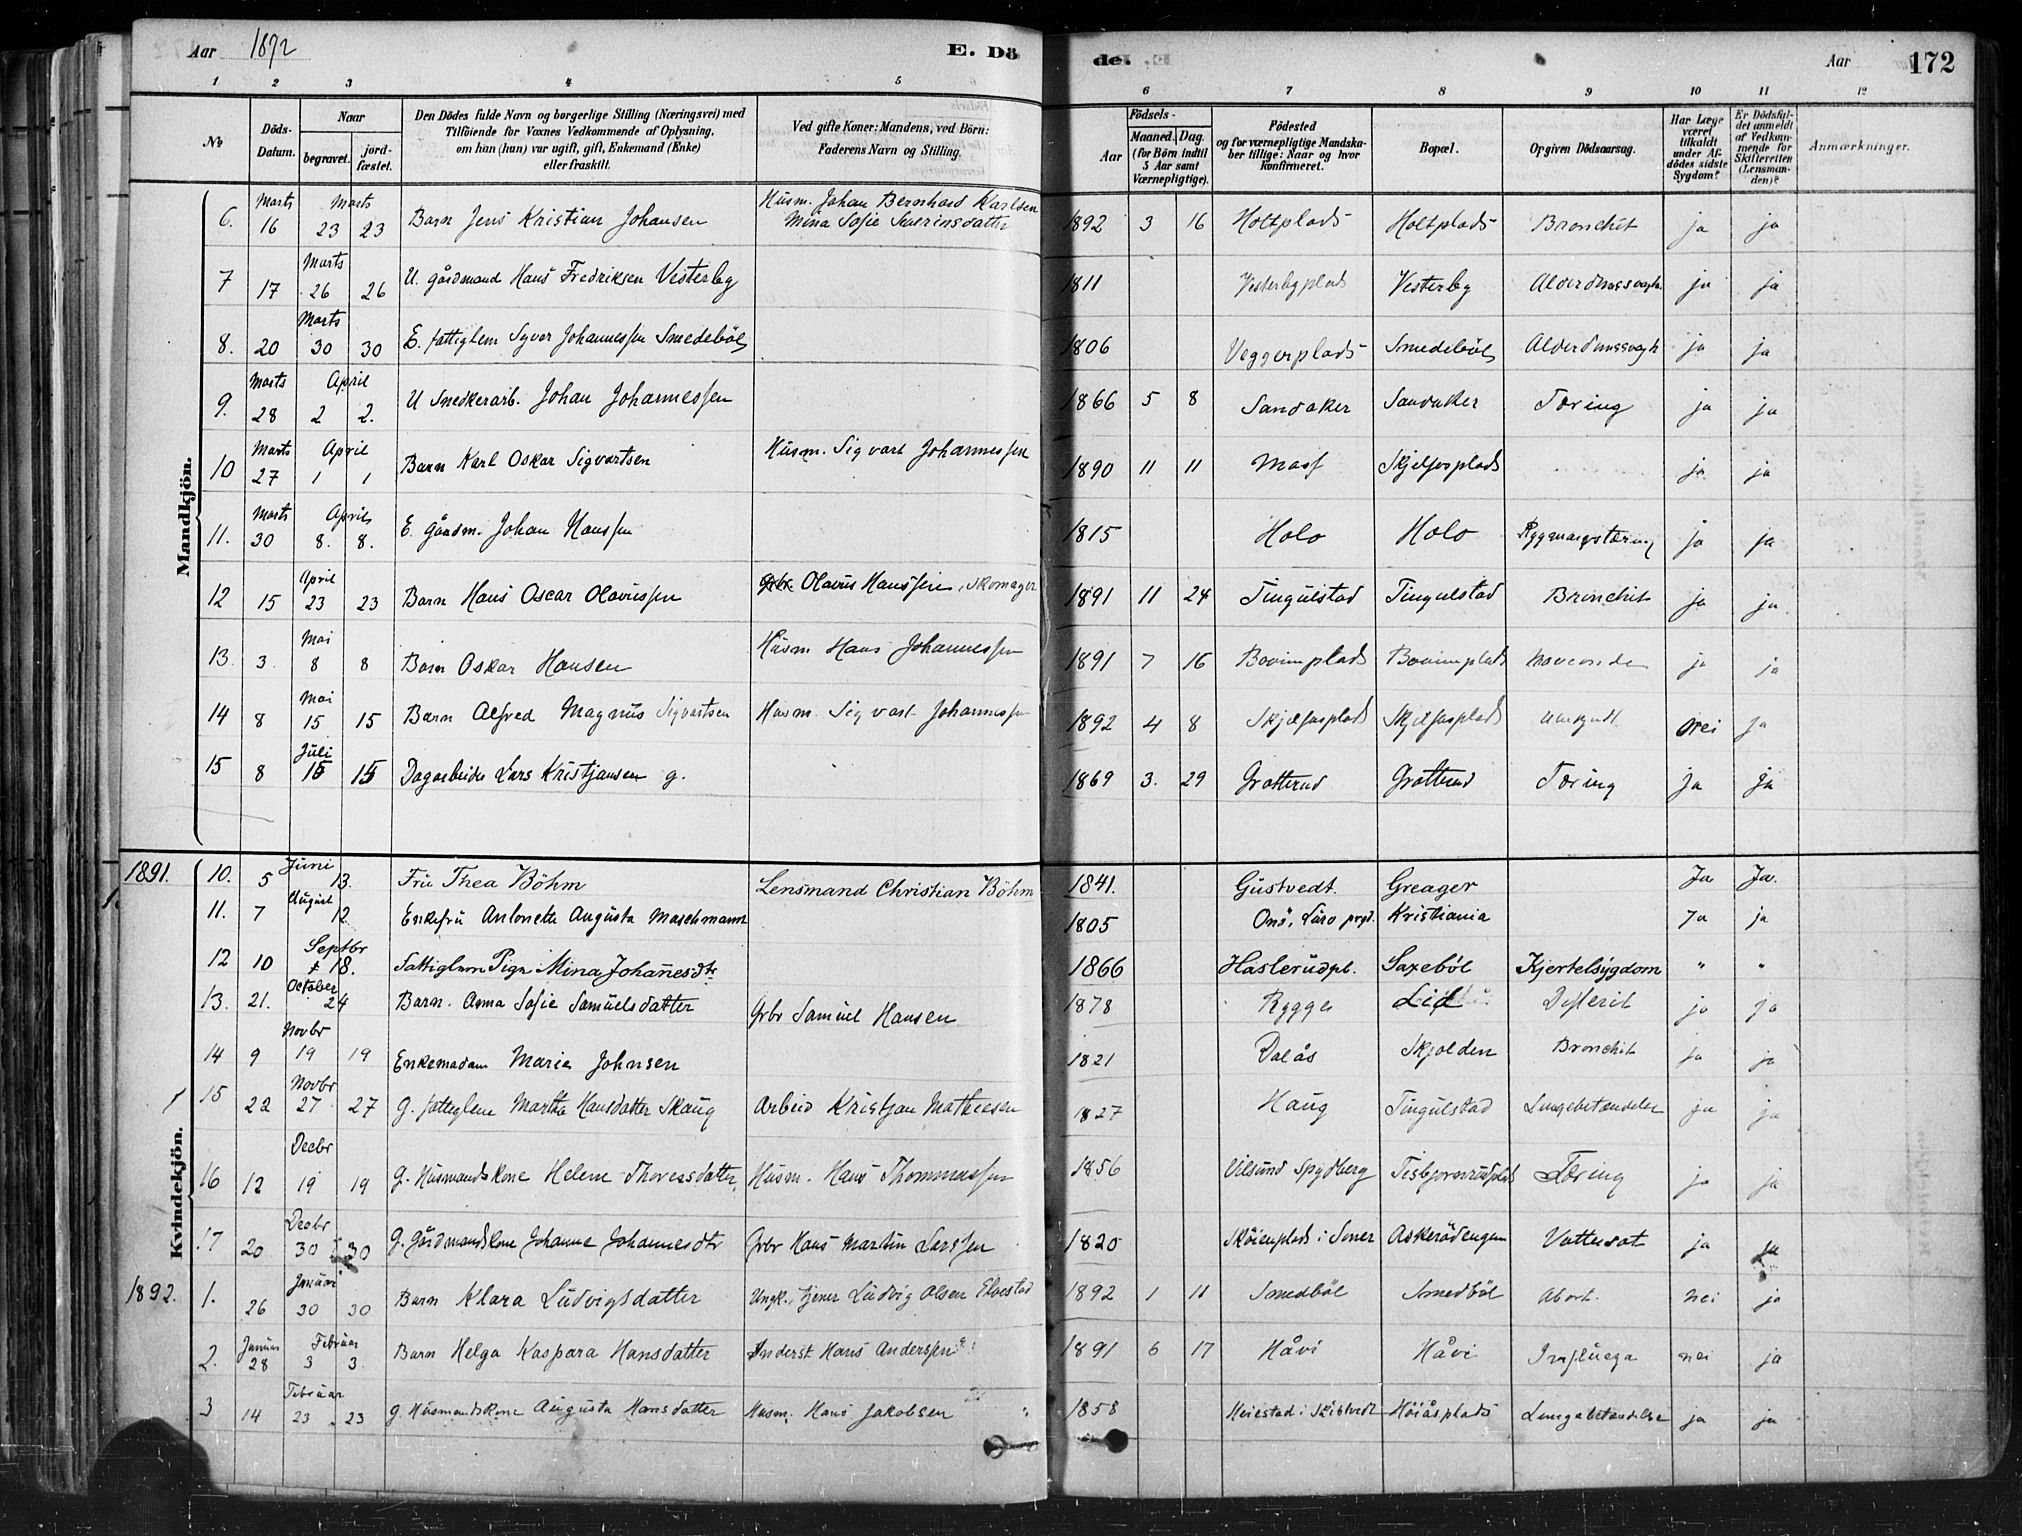 Aar 1892 E. Dö de. Aar 172
1 2 3 4 5 6 7 8 9 10 11 12
№
Döds-Datum.
Naar
begravet.
jord-fæstet.
Den Dödes fulde Navn og borgerlige Stilling (Næringsvei) med
Tilföiende for Voxnes Vedkommende af Oplysning,
om han (hun) var ugift, gift, Enkemand (Enke)
eller fraskilt.
Ved gifte Koner: Mandens, ved Börn:
Faderens Navn og Stilling.
Födsels-
Aar
Maaned. Dag.
(for Börn indtil
5 Aar samt
Værnepligtige).
Födested
og for værnepligtige Mandska-
ber tillige: Naar og hvor
konfirmeret.
Bopæl.
Opgiven Dödsaarsag.
Har Læge
været
tilkaldt
under Af-
dödes sidste
Sygdom?
Er Dödsfal-
det anmeldt
af Vedkom-
mende for
Skifteretten
(Lensman-
den)?
Anmærkninger.
Mandkjön.
6. Marts 16 Marts 23 23 Barn Jens Kristian Johansen Husm. Johan Bernhard Karlsen Mina Sofie Severinsdatter 1892 3 16 Holtplads Holtplads Bronchit ja ja
7 17 Marts 26 26 U. gårdmand Hans Fredriksen Vesterby 1811 Vesterbyplads Vesterby Alderdomssvagh. ja ja
8. 20 Marts 30 30 E. fattiglem Syver Johannessen Smedeböl 1806 Veggerplads Smedeböl Alderdomssvagh ja ja
9. Marts 28 April 2 2. U Snedkerarb. Johan Johannessen 1866 5 8 Sandaker Sandaker Tæring ja ja
10 Marts 27 April 1 1 Barn Karl Oskar Sigvartsen Husm. Sigvart Johannessen 1890 11 11 Moss Skjelfosplads ja ja
11. Marts 30 April 8. 8. E. Gårdm. Johan Hanssen 1815 Holo Holo Rygmargstæring ja ja
12 15 April 23 23 Barn Hans Oscar Olavussen Grbr. Olavus Hanssen, Skomager 1891 11 24 Tingulstad Tingulstad Bronchit ja ja
13. 3. Mai 8 8 Barn Oskar Hansen Husm Hans Johannessen 1891 7 16 Bovimplads Bovimplads ja ja
14 8 Mai 15 15 Barn Alfred Magnus Sigvartsen Husm. Sigvart Johannessen 1892 4 8 Skjelfosplads Skjelfosplads Ubekjendt nei ja
15 8 Juli 15 15 Dagarbeider Lars Kristjansen g. 1869 3. 29 Grotterud Grotterud Tæring ja ja
Kvindekjön.
1891. 10. 5 Juni 13. Fru Thea Böhm Lensmand Christian Böhm 1841. Gustvedt. Greager Ja Ja.
11. 7 August 12 Enkefru Antonette Augusta Maschmann 1805 Onsö, prgd. Kristiania Ja ja
12 10 Septbr 18. Fattiglem Pige Mina Johanesdtr 1866 Haslerudpl. Saxeböl Kjertelsygdom " "
13. 21. October 24 Barn. Anna Sofie Samuelsdatter Grbr Samuel Hansen 1878 Rygge Lid Difterit ja ja
14 9 Novbr 19 19 Enkemadam Maria Johnsen 1821 Dalås Skjolden Bronchit ja ja
15 22 Novbr 27 27 g. fattiglem Martha Hansdatter Skaug Arbeid Kristjan Mathiesen 1827 Haug Tingulstad Lungebetændelse ja ja
16 12 Decbr 19 19 g. Husmandskone Helene Thorersdatter Husm. Hans Thommassen 1856 Spydberg Tæring ja ja
17 20 Decbr 30 30 g. Gårdmandskone Johanne Johannesdtr Grbr Hans Martin Larssen 1820 Skōienplads i Soner Askerödengen Vattersot ja ja
1892. 1. 26 Januar 30 30 Barn Klara Ludvigsdatter Ungk. tjener Ludvig Olsen Elvestad 1892 1 11 Smedböl Smedböl Abort. nei ja
2. Januar 28 Februar 3 3. Barn Helga Kaspara Hansdatter Inderst Hans Anderssen 1891 6 17 Håvi Håvi Influenza nei ja
3 14 Februar 23 23 g. Husmandskone Augusta Hansdatter Husm. Hans Jakobsen 1858 Heiestad i Skibtvedt Höiåsplads Lungebetændelse ja ja